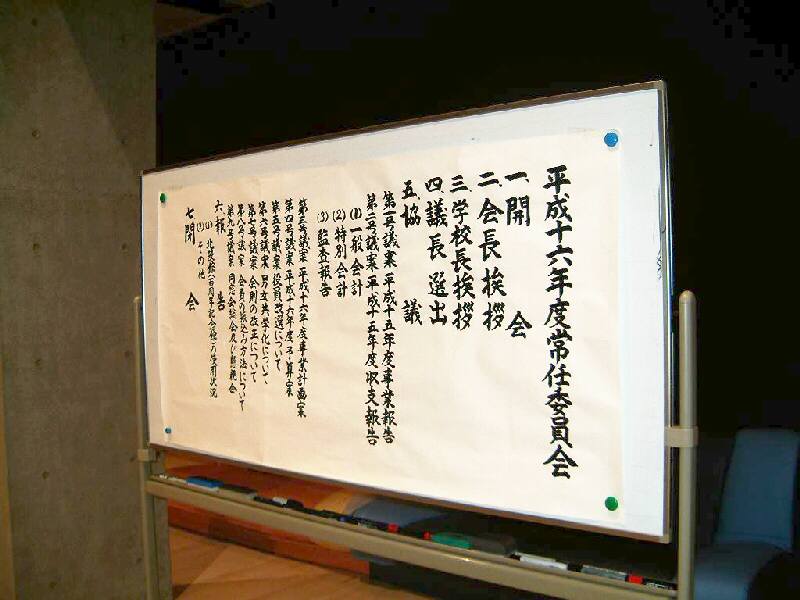 平成十六年度常任委員会
一、開　会
二、会長挨拶
三、学校長挨拶
四、議長選出
五、協　議
第一号議案 平成十五年度事業報告
第二号議案 平成十五年度収支報告
(1) 一般会計
(2) 特別会計
(3) 監査報告
第三号議案 平成十六年度事業計画案
第四号議案 平成十六年度予算案
第五号議案 役員改選について
第六号議案 男女共学化について
第七号議案 会則の改正について
第八号議案 会費の振込み方法について
第九号議案 同窓会総会及び懇親会
六、報　告
(1)
(2) その他
七、閉　会